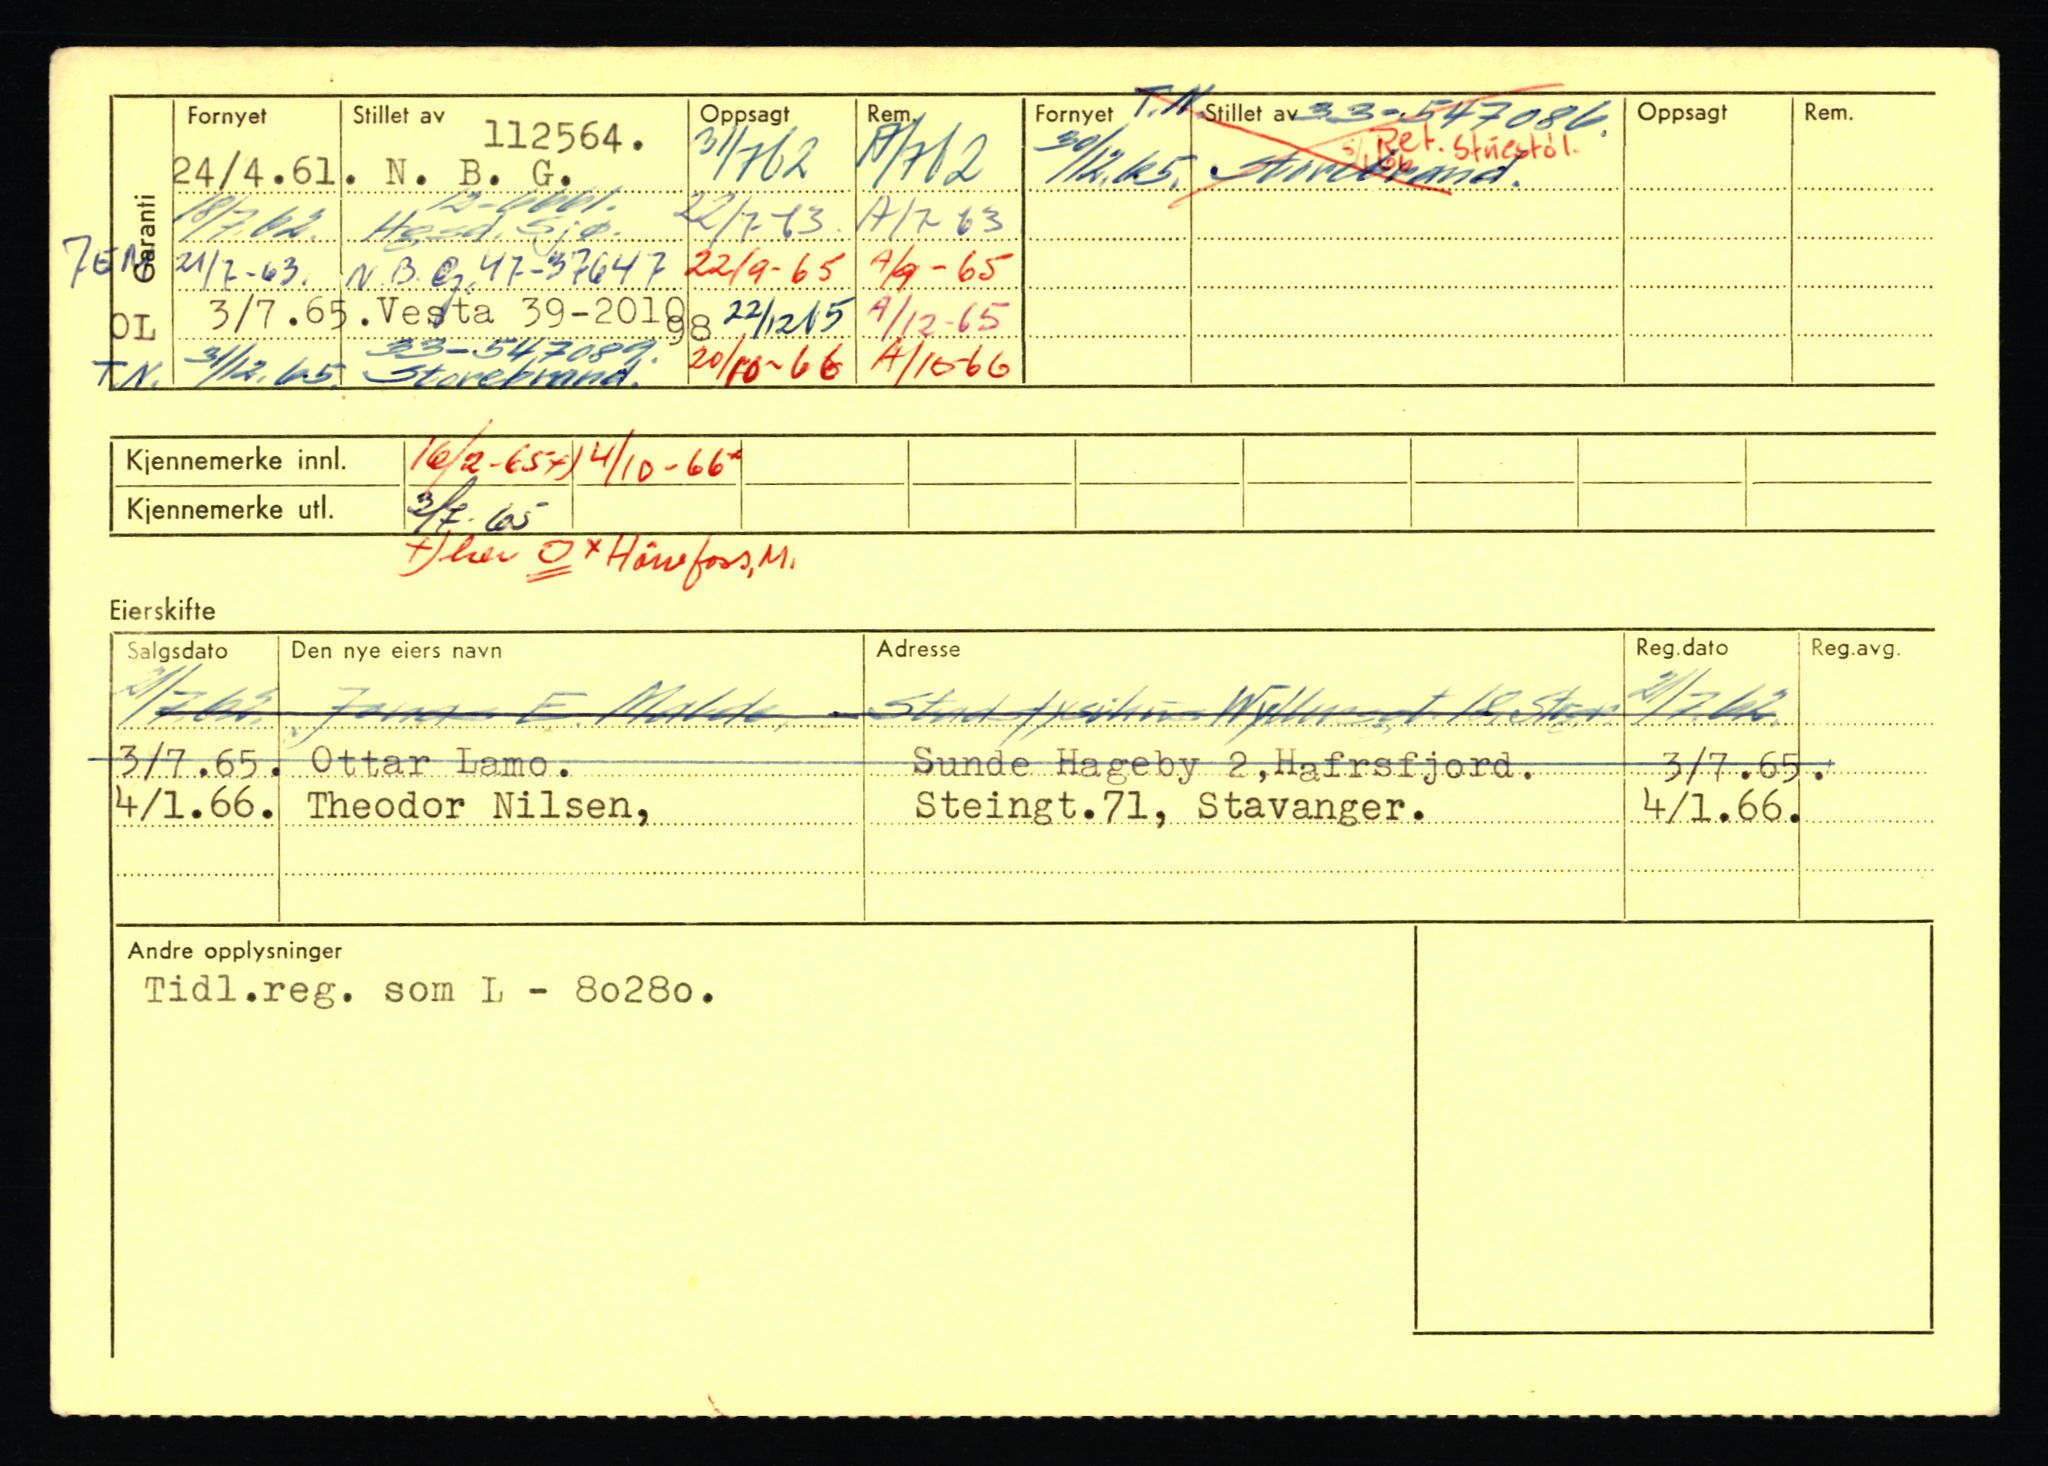 Garanti
Fornyet Stillet av Oppsagt Rem. Fornyet Stillet av Oppsagt Rem.
T.N. 33-547086.
112564.
24/4.61. N. B. G. 31/7 62 A/7 62 30/12.65. Storebrand.
Ret.
18/7.62. Hesd. Sjø. 22/7-63. A/7-63
21/7-63. N.B.G. 47-37647 22/9-65 A/9-65
OL 3/7.65. Vesta 39-201098 22/12 65 A/12-65
33-547089.
T.N. 31/12.65. Storebrand. 20/10-66 A/10-66
Kjennemerke innl. 16/2-65 +) 14/10-66 x
Kjennemerke utl. 3/7-65
+) her O x Hönefoss, M.
Eierskifte
Salgsdato Den nye eiers navn Adresse Reg.dato Reg.avg.
21/7.62. Jonas E. Malde, 21/7.62.
3/7.65. Ottar Lamo. Sunde Hageby 2,Hafrsfjord. 3/7.65.
4/1.66. Theodor Nilsen, Steingt.71, Stavanger. 4/1.66.
Andre opplysninger
Tidl.reg. som L - 80280.